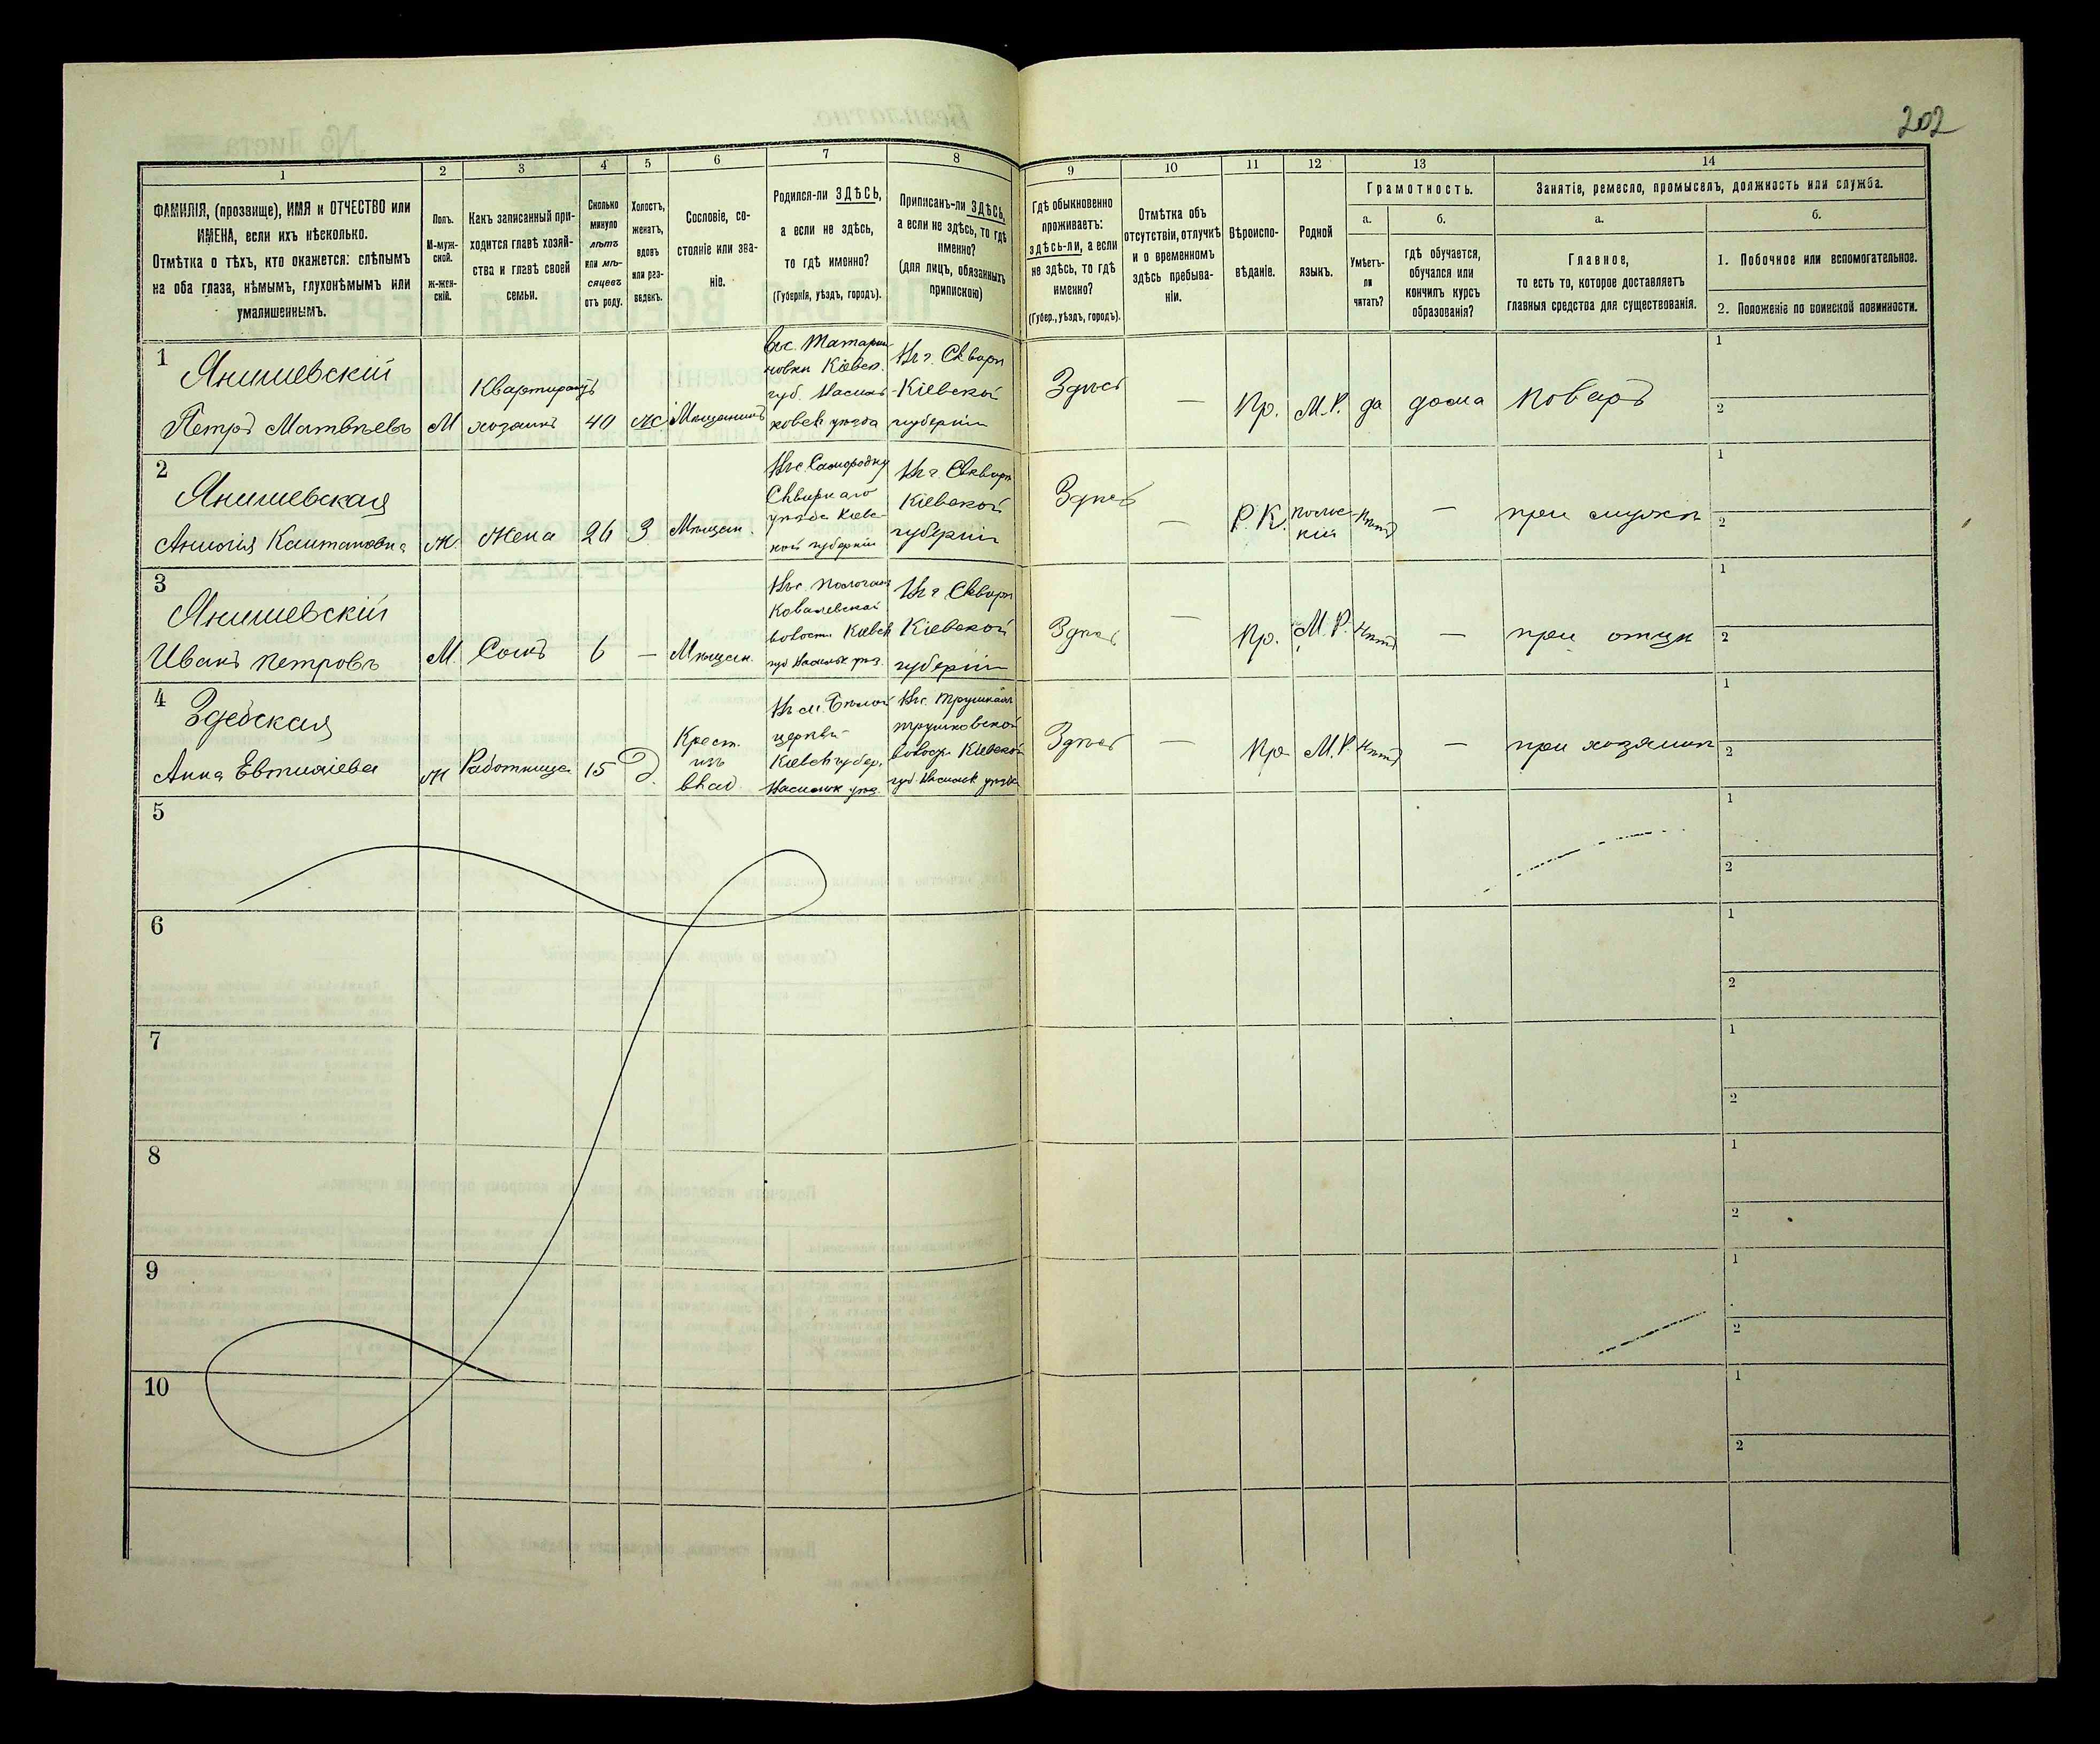 202
1
2
3
4
5
6
7
8
9
10
11
12
13
14
ФАМИЛІЯ, (прозвище), ИМЯ и ОТЧЕСТВО или
ИМЕНА, если ихъ нѣсколько.
Отмѣтка о тѣхъ, кто окажется: слѣпымъ
на оба глаза, нѣмымъ, глухонѣмымъ или
умалишеннымъ.
Полъ.
М-муж-
ской.
Ж-жен-
скій.
Какъ записанный при-
ходится главѣ хозяй-
ства и главѣ своей
семьи.
Сколько
минуло
лѣтъ
или мѣ-
сяцевъ
отъ роду.
Холостъ,
женатъ,
вдовъ
или раз-
веденъ.
Сословіе, со-
стояніе или зва-
ніе.
Родился-ли ЗДѢСЬ,
а если не здѣсь,
то гдѣ именно?
(Губернія, уѣздъ, городъ).
Приписанъ-ли ЗДѢСЬ,
а если не здѣсь, то гдѣ
именно?
(для лицъ, обязанныхъ
припискою)
Гдѣ обыкновенно
проживаетъ:
здѣсь-ли, а если
не здѣсь, то гдѣ
именно?
(Губер., уѣздъ, городъ).
Отмѣтка объ
отсутствіи, отлучкѣ
и о временномъ
здѣсь пребыва-
ніи.
Вѣроиспо-
вѣданіе.
Родной
языкъ.
Грамотность.
а.
Умѣетъ-
ли
читать?
б.
гдѣ обучается,
обучался или
кончилъ курсъ
образованія?
Занятіе, ремесло, промыселъ, должность или служба.
а.
Главное,
то есть то, которое доставляетъ
главныя средства для существованія.
б.
1. Побочное или вспомогательное.
2. Положеніе по воинской повинности.
1
Янишевскій
Петръ Матвѣевъ
М
Квартирантъ
хозяинъ
40
ж
Мѣщанинъ
новки Кіевск.
губ. Васильковск уѣзда
Въ г. Сквирѣ
Кіевской
губерніи
Здѣсь
—
Пр.
М.Р.
да
дома
Поваръ
1
2
2
Янишевская
Ж.
Жена
26
З
Мѣщан.
Сквирскаго
уѣзда Кіевс-
кой губерніи
Въ г. Сквирѣ
Кіевской
губерніи
Здѣсь
—
Р.К.
польс-
кій
Нѣтъ
—
при мужѣ
1
2
3
Янишевскій
Иванъ Петровъ
М.
Сынъ
6
—
Мѣщан.
Въ г. Сквирѣ
Кіевской
губерніи
Здѣсь
—
Пр.
М.Р.
Нѣтъ
—
при отцѣ
1
2
4
Здебская
Анна Евтихіева
Ж
Работница
15
Д.
Крест.
изъ
влад
Въ м. Бѣлой
церкви
Кіевск губер.
Васильк уѣз.
Трушковской
волости Кіевской
губ. Васильк уѣзда
Здѣсь
—
Пр
М.Р.
Нѣтъ
—
при хозяинѣ
1
2
5
1
2
6
1
2
7
1
2
8
1
2
9
1
2
10
1
2